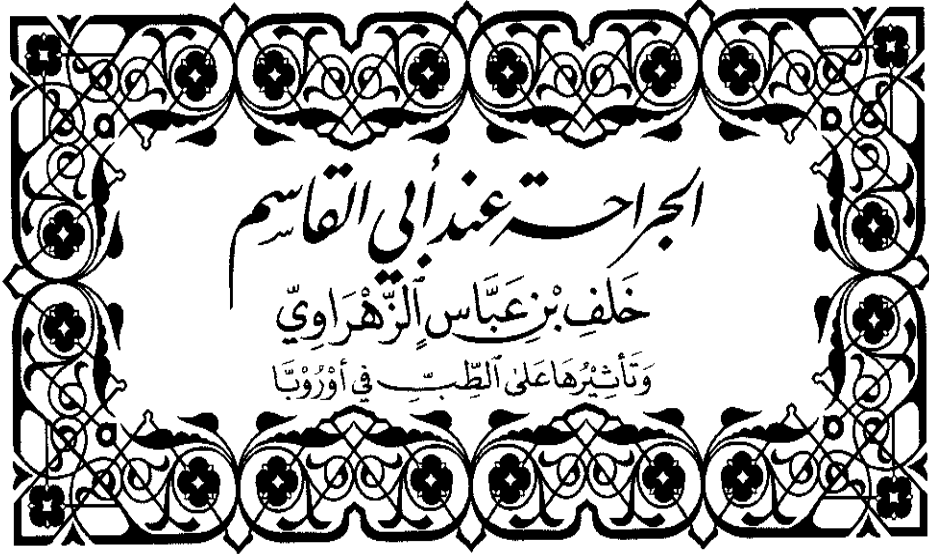 الجراحة عند أبي القاسم
خَلَفِ بْنِ عَبَّاسٍ ٱلزَّهْرَاوِيّ
وَتَأثِيْرُهَا عَلىٰ ٱلطِّبِّ فِي أوْرُوْبَّا